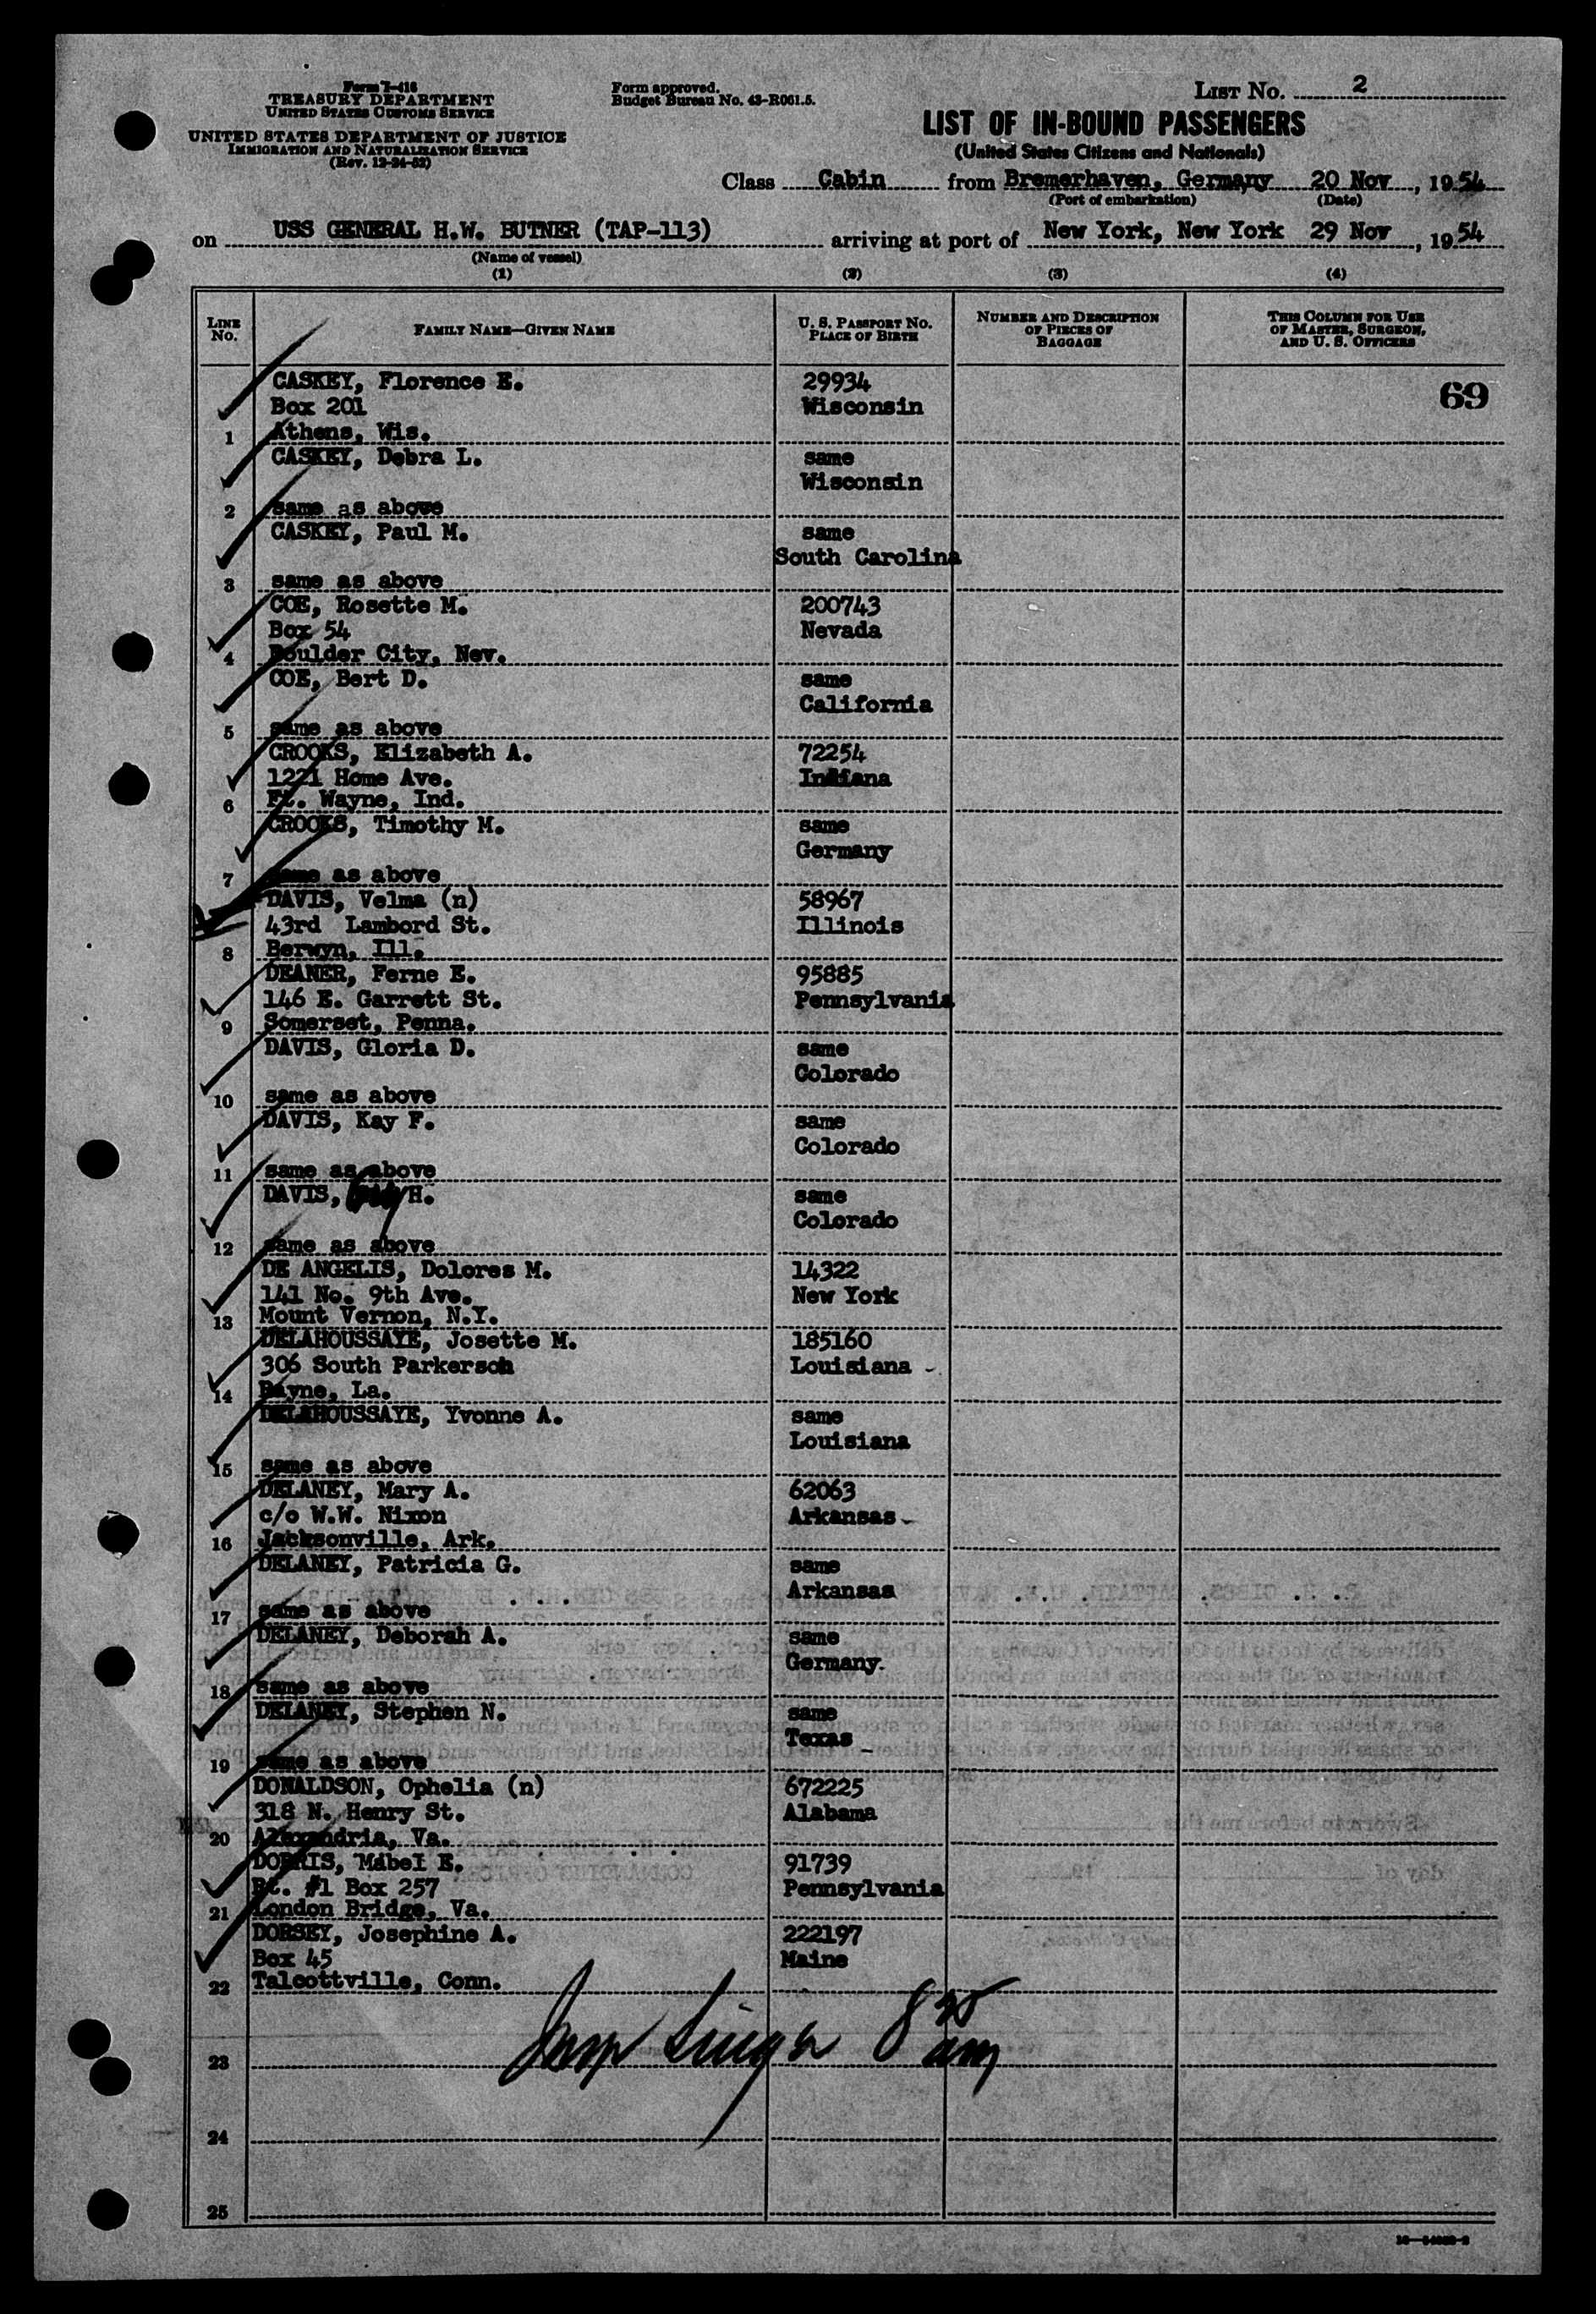 Form I-418
TREASURY DEPARTMENT
UNITED STATES CUSTOMS SERVICE
UNITED STATES DEPARTMENT OF JUSTICE
IMMIGRATION AND NATURALIZATION SERVICE
(Rev. 12-24-52)
Form approved.
Budget Bureau No. 43-R061.5.
LIST No. 2
LIST OF IN-BOUND PASSENGERS
(United States Citizens and Nationals)
Class Cabin from Bremerhaven, Germany 20 Nov, 1954
(Port of embarkation) (Date)
on USS GENERAL H.W. BUTNER (TAP-113) arriving at port of New York, New York 29 Nov, 1954
(Name of vessel)
(1) (2) (3) (4)
LINE No. FAMILY NAME—GIVEN NAME U. S. PASSPORT No. PLACE OF BIRTH NUMBER AND DESCRIPTION OF PIECES OF BAGGAGE THIS COLUMN FOR USE OF MASTER, SURGEON, AND U. S. OFFICERS
CASKEY, Florence E. 29934 69
Box 201 Wisconsin
1 Athens, Wis.
CASKEY, Debra L. same
Wisconsin
2 same as above
CASKEY, Paul M. same
South Carolina
3 same as above
COE, Rosette M. 200743
Box 54 Nevada
4 Boulder City, Nev.
COE, Bert D. same
California
5 same as above
CROOKS, Elizabeth A. 72254
1221 Home Ave. Indiana
6 Ft. Wayne, Ind.
CROOKS, Timothy M. same
Germany
7 same as above
DAVIS, Velma (n) 58967
43rd Lambord St. Illinois
8 Berwyn, Ill.
DEANER, Ferne E. 95885
146 E. Garrett St. Pennsylvania
9 Somerset, Penna.
DAVIS, Gloria D. same
Colorado
10 same as above
DAVIS, Kay F. same
Colorado
11 same as above
DAVIS, H. same
Colorado
12 same as above
DE ANGELIS, Dolores M. 14322
141 No. 9th Ave. New York
13 Mount Vernon, N.Y.
DELAHOUSSAYE, Josette M. 185160
306 South Parkerson Louisiana
14 Rayne, La.
DELAHOUSSAYE, Yvonne A. same
Louisiana
15 same as above
DELANEY, Mary A. 62063
c/o W.W. Nixon Arkansas
16 Jacksonville, Ark.
DELANEY, Patricia G. same
Arkansas
17 same as above
DELANEY, Deborah A. same
Germany
18 same as above
DELANEY, Stephen N. same
Texas
19 same as above
DONALDSON, Ophelia (n) 672225
318 N. Henry St. Alabama
20 Alexandria, Va.
DORRIS, Mabel E. 91739
Rt. #1 Box 257 Pennsylvania
21 London Bridge, Va.
DORSEY, Josephine A. 222197
Box 45 Maine
22 Talcottville, Conn.
23
24
25